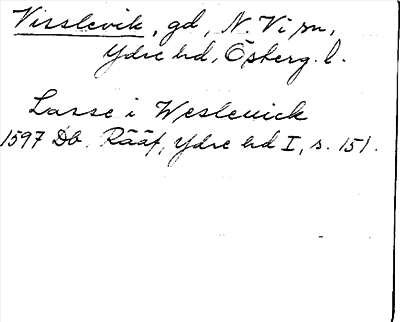 Visslevik, gd, N. Vi sn,
Ydre hd, Österg. l.
Lasse i Weslewick
1597 Db. Rääf, Ydre hd I, s. 151.